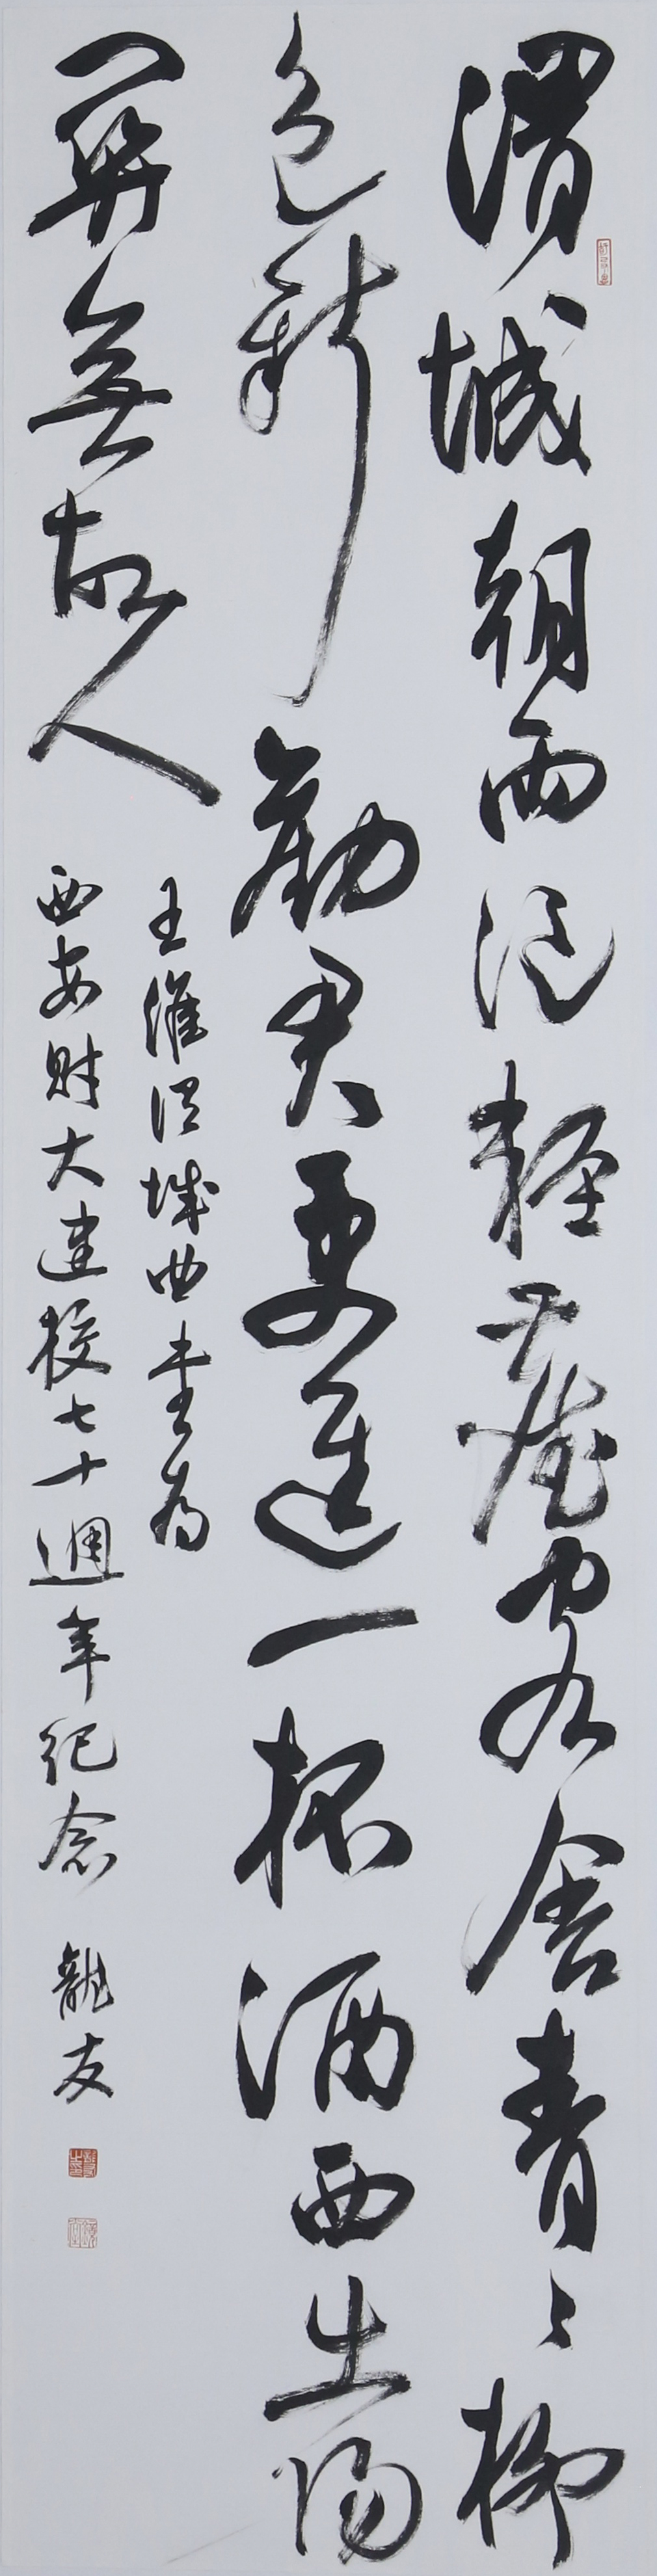 渭城朝雨浥轻尘客舍青〻柳
色新劝君更进一杯酒西出阳
关无故人
王维渭城曲书为
西安财大建校七十週年纪念
龍友